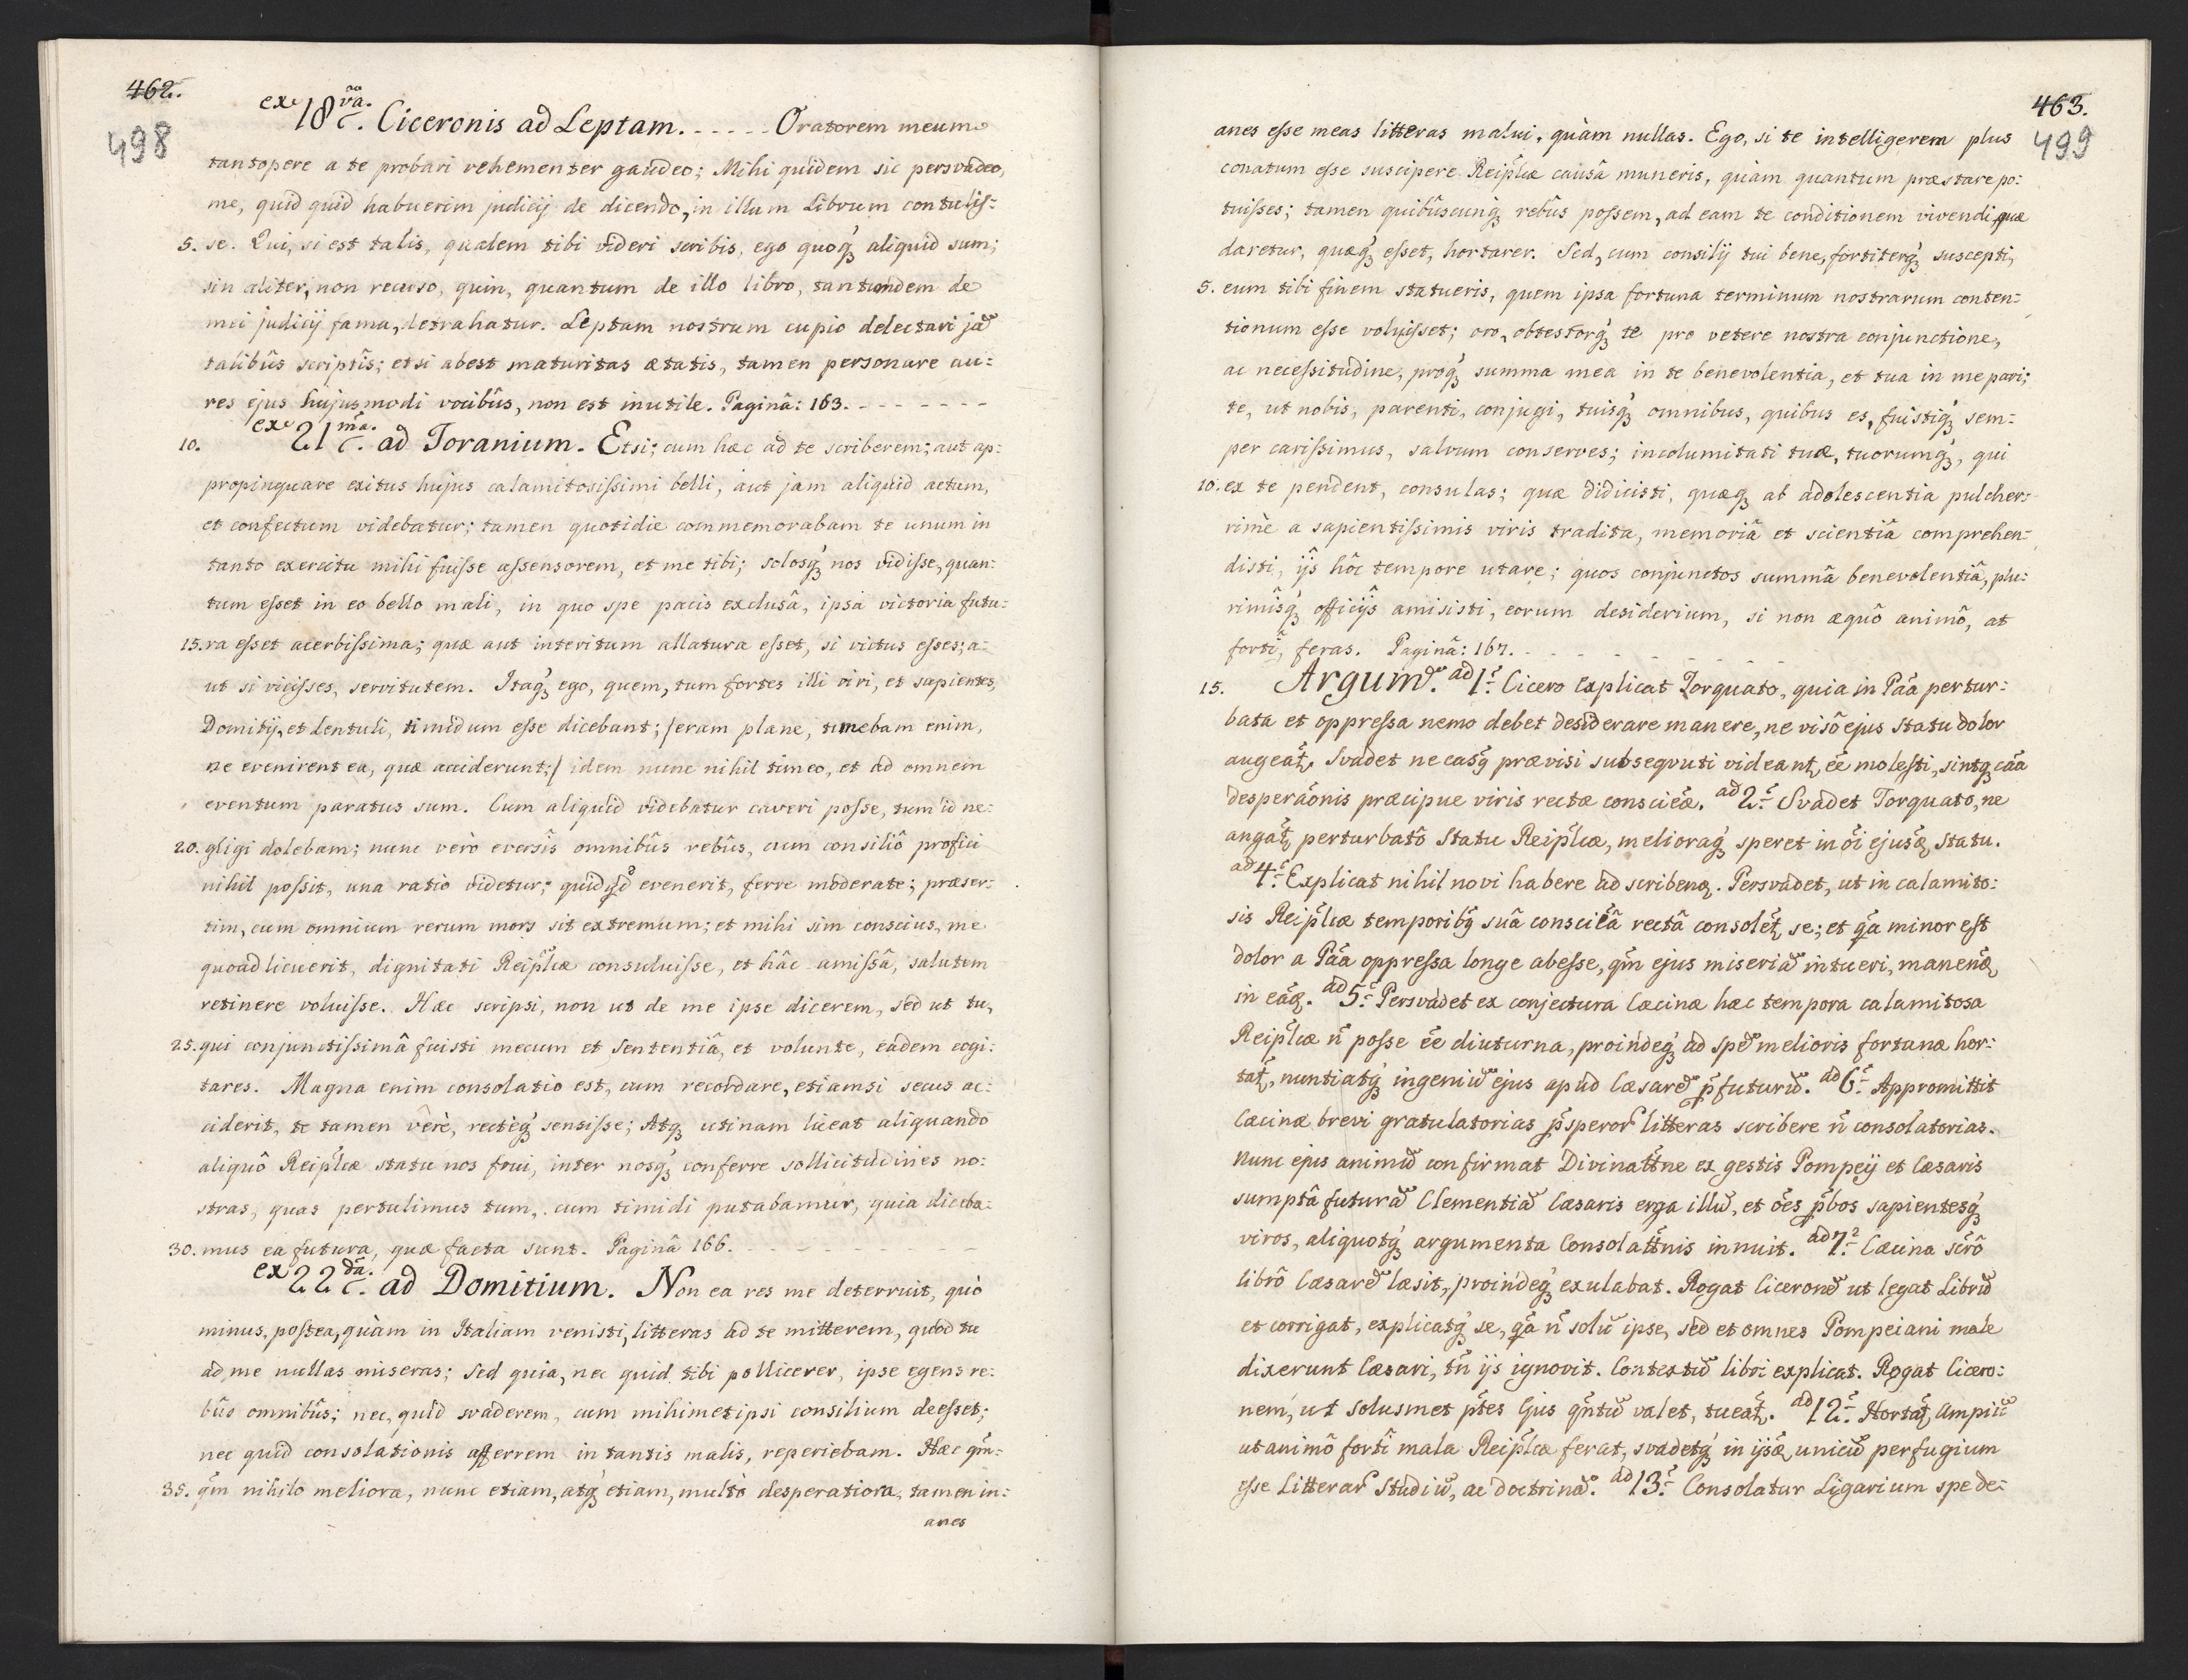 462.
498
ex 18.va c. Ciceronis ad Leptam. - - - - - Oratorem meum
tantopere a te probari vehementer gaudeo; Mihi quidem sic persvadeo,
me, quid quid habuerim judicij de dicendo, in illum Librum contulis=
5. se. Qui, si est talis, qualem tibi videri scribis, ego quoq́ꝫ aliquid sum;
sin aliter, non recuso, quin, quantum de illo libro, tantundem de
mei judicij fama, detrahatur. Leptam nostrum cupio delectari jam̃
talibûs scriptîs; etsi abest maturitas ætatis, tamen personare au=
res ejus hujusmodi vocibûs, non est inutile. Paginâ: 163. - - - - - - -
10. ex 21.ma c. ad Toranium. Etsi; cum hæc ad te scriberem; aut ap=
propinquare exitus hujus calamitosissimi belli, aut jam aliquid actum,
et confectum videbatur; tamen quotidie commemorabam te unum in
tanto exercitu mihi fuisse assensorem, et me tibi; solosq́ꝫ nos vidisse, quan=
tum esset in eo bello mali, in quo spe pacis exclusâ, ipsa victoria futu=
15. ra esset acerbissima; quæ aut interitum allatura esset, si victus esses; a=
ut si vicisses, servitutem. Itaq́ꝫ ego, quem, tum fortes illi viri, et sapientes,
Domitij, et Lentuli, timidum esse dicebant; /eram plane, timebam enim,
ne evenirent ea, quæ acciderunt;/ idem nunc nihil timeo, et ad omnem
eventum paratus sum. Cum aliquid videbatur caveri posse, tum id ne=
20. gligi dolebam; nunc verò eversîs omnibûs rebûs, cum consiliô profici
nihil possit, una ratio videtur; quidq̃d evenerit, ferre moderate; præser=
tim, cum omnium rerum mors sit extremum; et mihi sim conscius, me
quoad licuerit, dignitati Reip̃licæ consuluisse, et hâc amissâ, salutem
retinere voluisse. Hæc scripsi, non ut de me ipse dicerem, sed ut tu,
25. qui conjunctissimâ fuisti mecum et sententiâ, et volunte, eadem cogi=
tares. Magna enim consolatio est, cum recordare, etiamsi secus ac=
ciderit, te tamen vêrè, rectèq́ꝫ sensisse; Atq́ꝫ utinam liceat aliquando
aliquô Reip̃licæ statu nos frui, inter nosq́ꝫ conferre sollicitudines no=
stras, quas pertulimus tum, cum timidi putabamur, quia diceba=
30. mus ea futura, quæ facta sunt. Paginâ 166. - - - - - - -
ex 22.da c. ad Domitium. Non ea res me deterruit, quò
minus, postea, quàm in Italiam venisti, litteras ad te mitterem, quod tu
ad me nullas miseras; sed quia, nec quid tibi pollicerer, ipse egens re=
bûs omnibûs; nec, quid svaderem, cum mihimetipsi consilium deesset;
nec quid consolationis afferrem in tantis malis, reperiebam. Hæc qm̃=
35. qm̃ nihilo meliora, nunc etiam, atq́ꝫ etiam, multò desperatiora, tamen in=
anes
463.
499
anes esse meas litteras malui, quàm nullas. Ego, si te intelligerem plus
conatum esse suscipere Reip̃licæ causâ muneris, quàm quantum præstare po=
tuisses; tamen quibûscunq́ꝫ rebûs possem, ad eam te conditionem vivendi, quæ
daretur, quæq́ꝫ esset, hortarer. Sed, cum consilij tui bene, fortiterq́ꝫ suscepti,
5. eum tibi finem statueris, quem ipsa fortuna terminum nostrarum conten=
tionum esse voluisset; oro, obtestorq́ꝫ te pro vetere nostra conjunctione,
ac necessitudine, proq́ꝫ summa mea in te benevolentia, et tua in me pari;
te, ut nobis, parenti, conjugi, tuisq́ꝫ omnibus, quibus es, fuistiq́ꝫ sem=
per carissimus, salvum conserves; incolumitati tuæ, tuorumq́ꝫ, qui
10. ex te pendent, consulas; quæ didicisti, quæq́ꝫ ab adolescentia pulcher=
rimè a sapientissimis viris tradita, memoriâ et scientiâ comprehen=
disti, ijs hôc tempore utare; quos conjunctos summâ benevolentiâ, plu=
rimîsq́ꝫ officijs amisisti, eorum desiderium, si non æquô animô, at
fortî, feras. Paginâ: 167. - - - - - - -
15. Argum̃. ad 1. Cicero explicat Torquato, quia in Pãa pertur=
bata et oppressa nemo debet desiderare manere, ne visô ejus statu dolor
augeat̃. Svadet ne casq́ prævisi subseqvuti videant̃, ẽe molesti, sintq́ꝫ cãa
desperãonis præcipue viris rectæ consciẽæ. ad 2. Svadet Torquato, ne
angat̃ perturbatô statu Reip̃licæ, melioraq́ꝫ speret in õi ejusd̃ statu.
ad 4. Explicat nihil novi habere ad scribend̃. Persvadet, ut in calamito=
sis Reip̃licæ temporib⁹ suâ consciẽâ rectâ consolet̃ se; et q̃a minor est
dolor a Pãa oppressa longe abesse, qm̃ ejus miseriam̃ intueri, manend̃
in eãd̃. ad 5. Persvadet ex conjectura Cæcinæ hæc tempora calamitosa
Reip̃licæ ñ posse ẽe diuturna, proindeq́ꝫ ad spem̃ melioris fortunæ hor=
tat̃, nuntiatq́ꝫ ingenium̃ ejus apud Cæsarem̃ p̃futurum̃. ad 6. Appromittit
Cæcinæ brevi gratulatorias p̃speror̃ litteras scribere ñ consolatorias.
Nunc ejus animum̃ confirmat Divinatt̃ne ex gestis Pompeij et Cæsaris
sumptâ futuram̃ Clementiam̃ Cæsaris erga illum̃, et ões p̃bos sapientesq́ꝫ
viros, aliquotq́ꝫ argumenta Consolatt̃nis innuit. ad 7. Cæcina sc̃rô
librô Cæsarem̃ læsit, proindeq́ꝫ exulabat. Rogat Ciceronem̃ ut legat Librum̃
et corrigat, explicatq́ꝫ se, q̃a ñ solum̃ ipse, sed et omnes Pompeiani male
dixerunt Cæsari, tñ ijs ignovit. Contextum̃ libri explicat. Rogat Cicero=
nem, ut solusmet p̃tes ejus q̃ntum̃ valet, tueat̃. ad 12. Hortat̃ Ampium̃
ut animô fortî mala Reip̃licæ ferat, svadetq́ꝫ in ijsd̃ unicum̃ perfugium
esse Litterar̃ studium̃, ac doctrinam̃. ad 13. Consolatur Ligarium spe de=